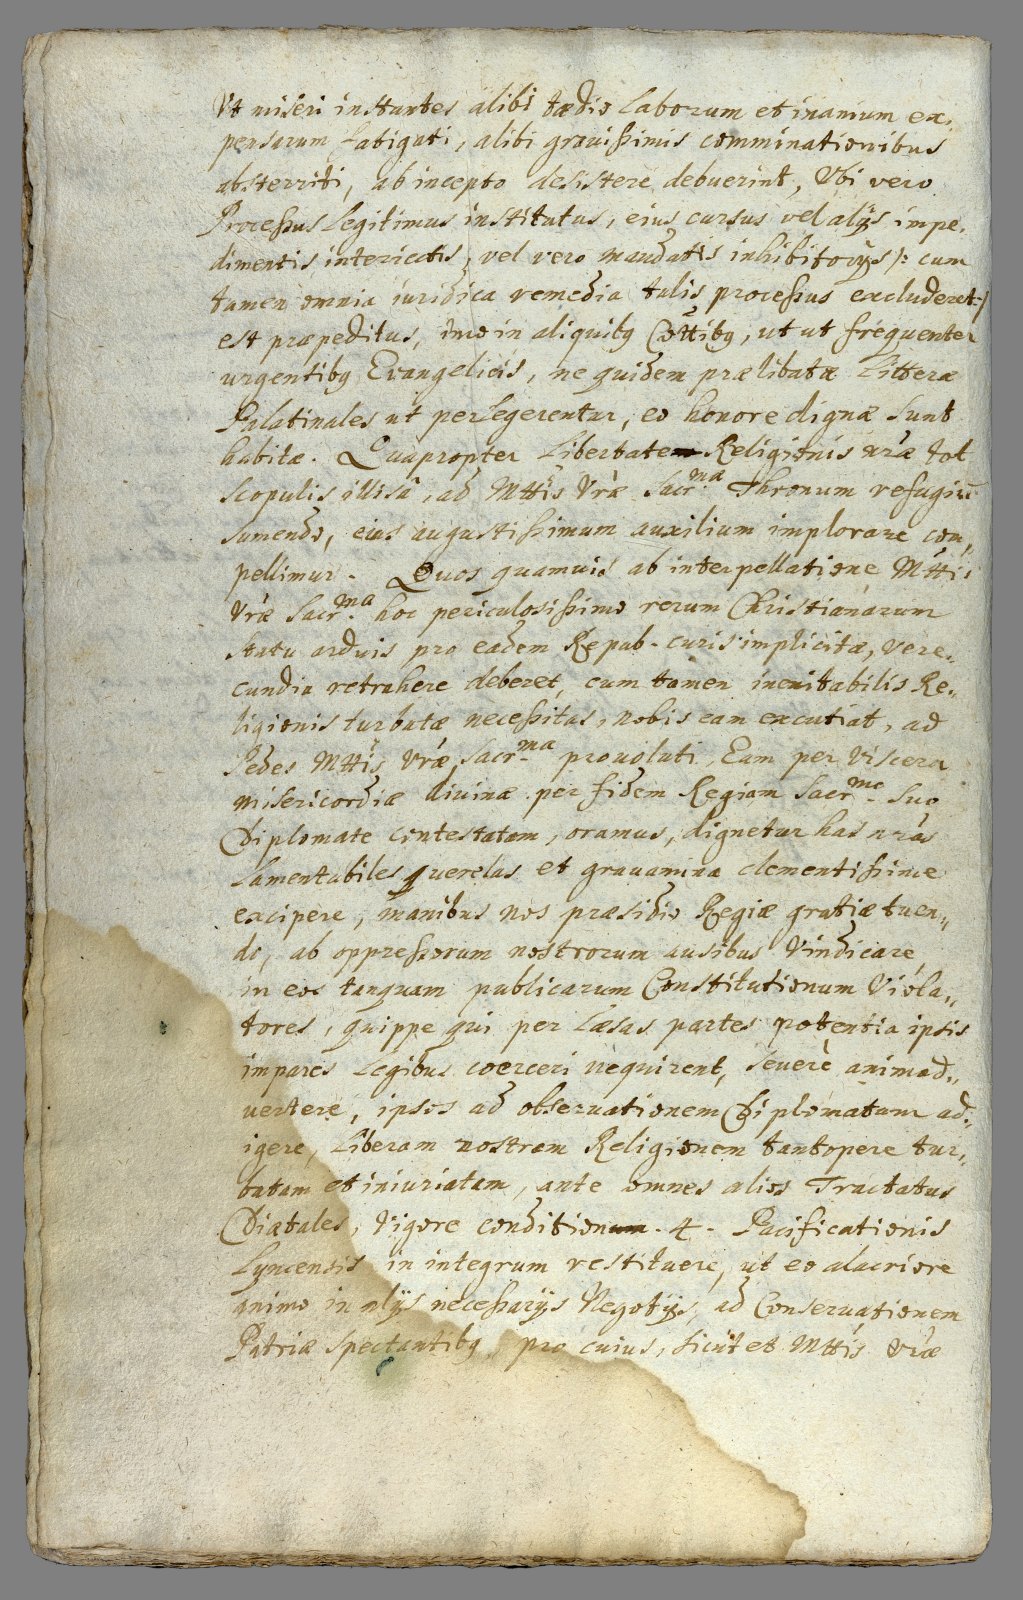 Ut miseri instantes alibi tædio laborum et inanium ex,
pensarum fatigati, alibi grauissimis comminationibus
absterriti, ab incepto desistere debuerint, Ubi vero
Processus legitimus institutus, eius cursus vel alijs impe,
dimentis interiectis, vel vero mandatis inhibitorijs /: cum
tamen omnia iuridica remedia talis processus excluderet :/
est præpeditus, imo in aliquibꝫ Cottibꝫ, ut ut frequenter
urgentibꝫ Evangelicis, ne quidem prælibatæ Litteræ
Palatinales ut perlegerentur, eo honore dignæ sunt
habitæ. Quapropter Libertate Religionis nræ tot
scopulis illisâ, ad Mttis Vræ Sacr.mæ Thronum refugiū
sumendo, eius augustissimum auxilium implorare com„
pellimur. Quos quamuis ab interpellatione Mttis
Vræ Sacr.ma hoc periculosissimo rerum Christianarum
statu arduis pro eadem Repub. curis implicitæ, vere„
cundia retrahere deberet, cum tamen ineuitabilis Re„
ligionis turbatæ necessitas, nobis eam excutiat, ad
Pedes Mttis Vræ Sacr.ma prouoluti, Eam per viscera
misericordiæ divinæ per fidem Regiam Sacr.mo suo
Diplomate contestatam, oramus, dignetur has nras
Lamentabiles querelas et grauamina clementissime
excipere, manibus nos præsidio Regiæ gratiæ tuen„
do, ab oppressorum nostrorum ausibus Vindicare
in eos tanquam publicarum Constitutionum Viola„
tores, quippe qui per læsas partes potentia ipsis
impares Legibus coerceri nequirent, seuerè animad„
uertere, ipsos ad obseruationem Diplomatum ad„
igere, Liberam nostram Religionem tantopere tur„
batam et iniuriatam, ante omnes alios Tractatus
Diætales, Vigore condition. 4. Pacificationis
Lyncensis in integrum restituere, ut eo alacriore
animo in alijs necessarijs Negotijs, ad Conseruationem
Patriæ spectantibꝫ pro cuius, sicut et Mttis Vræ